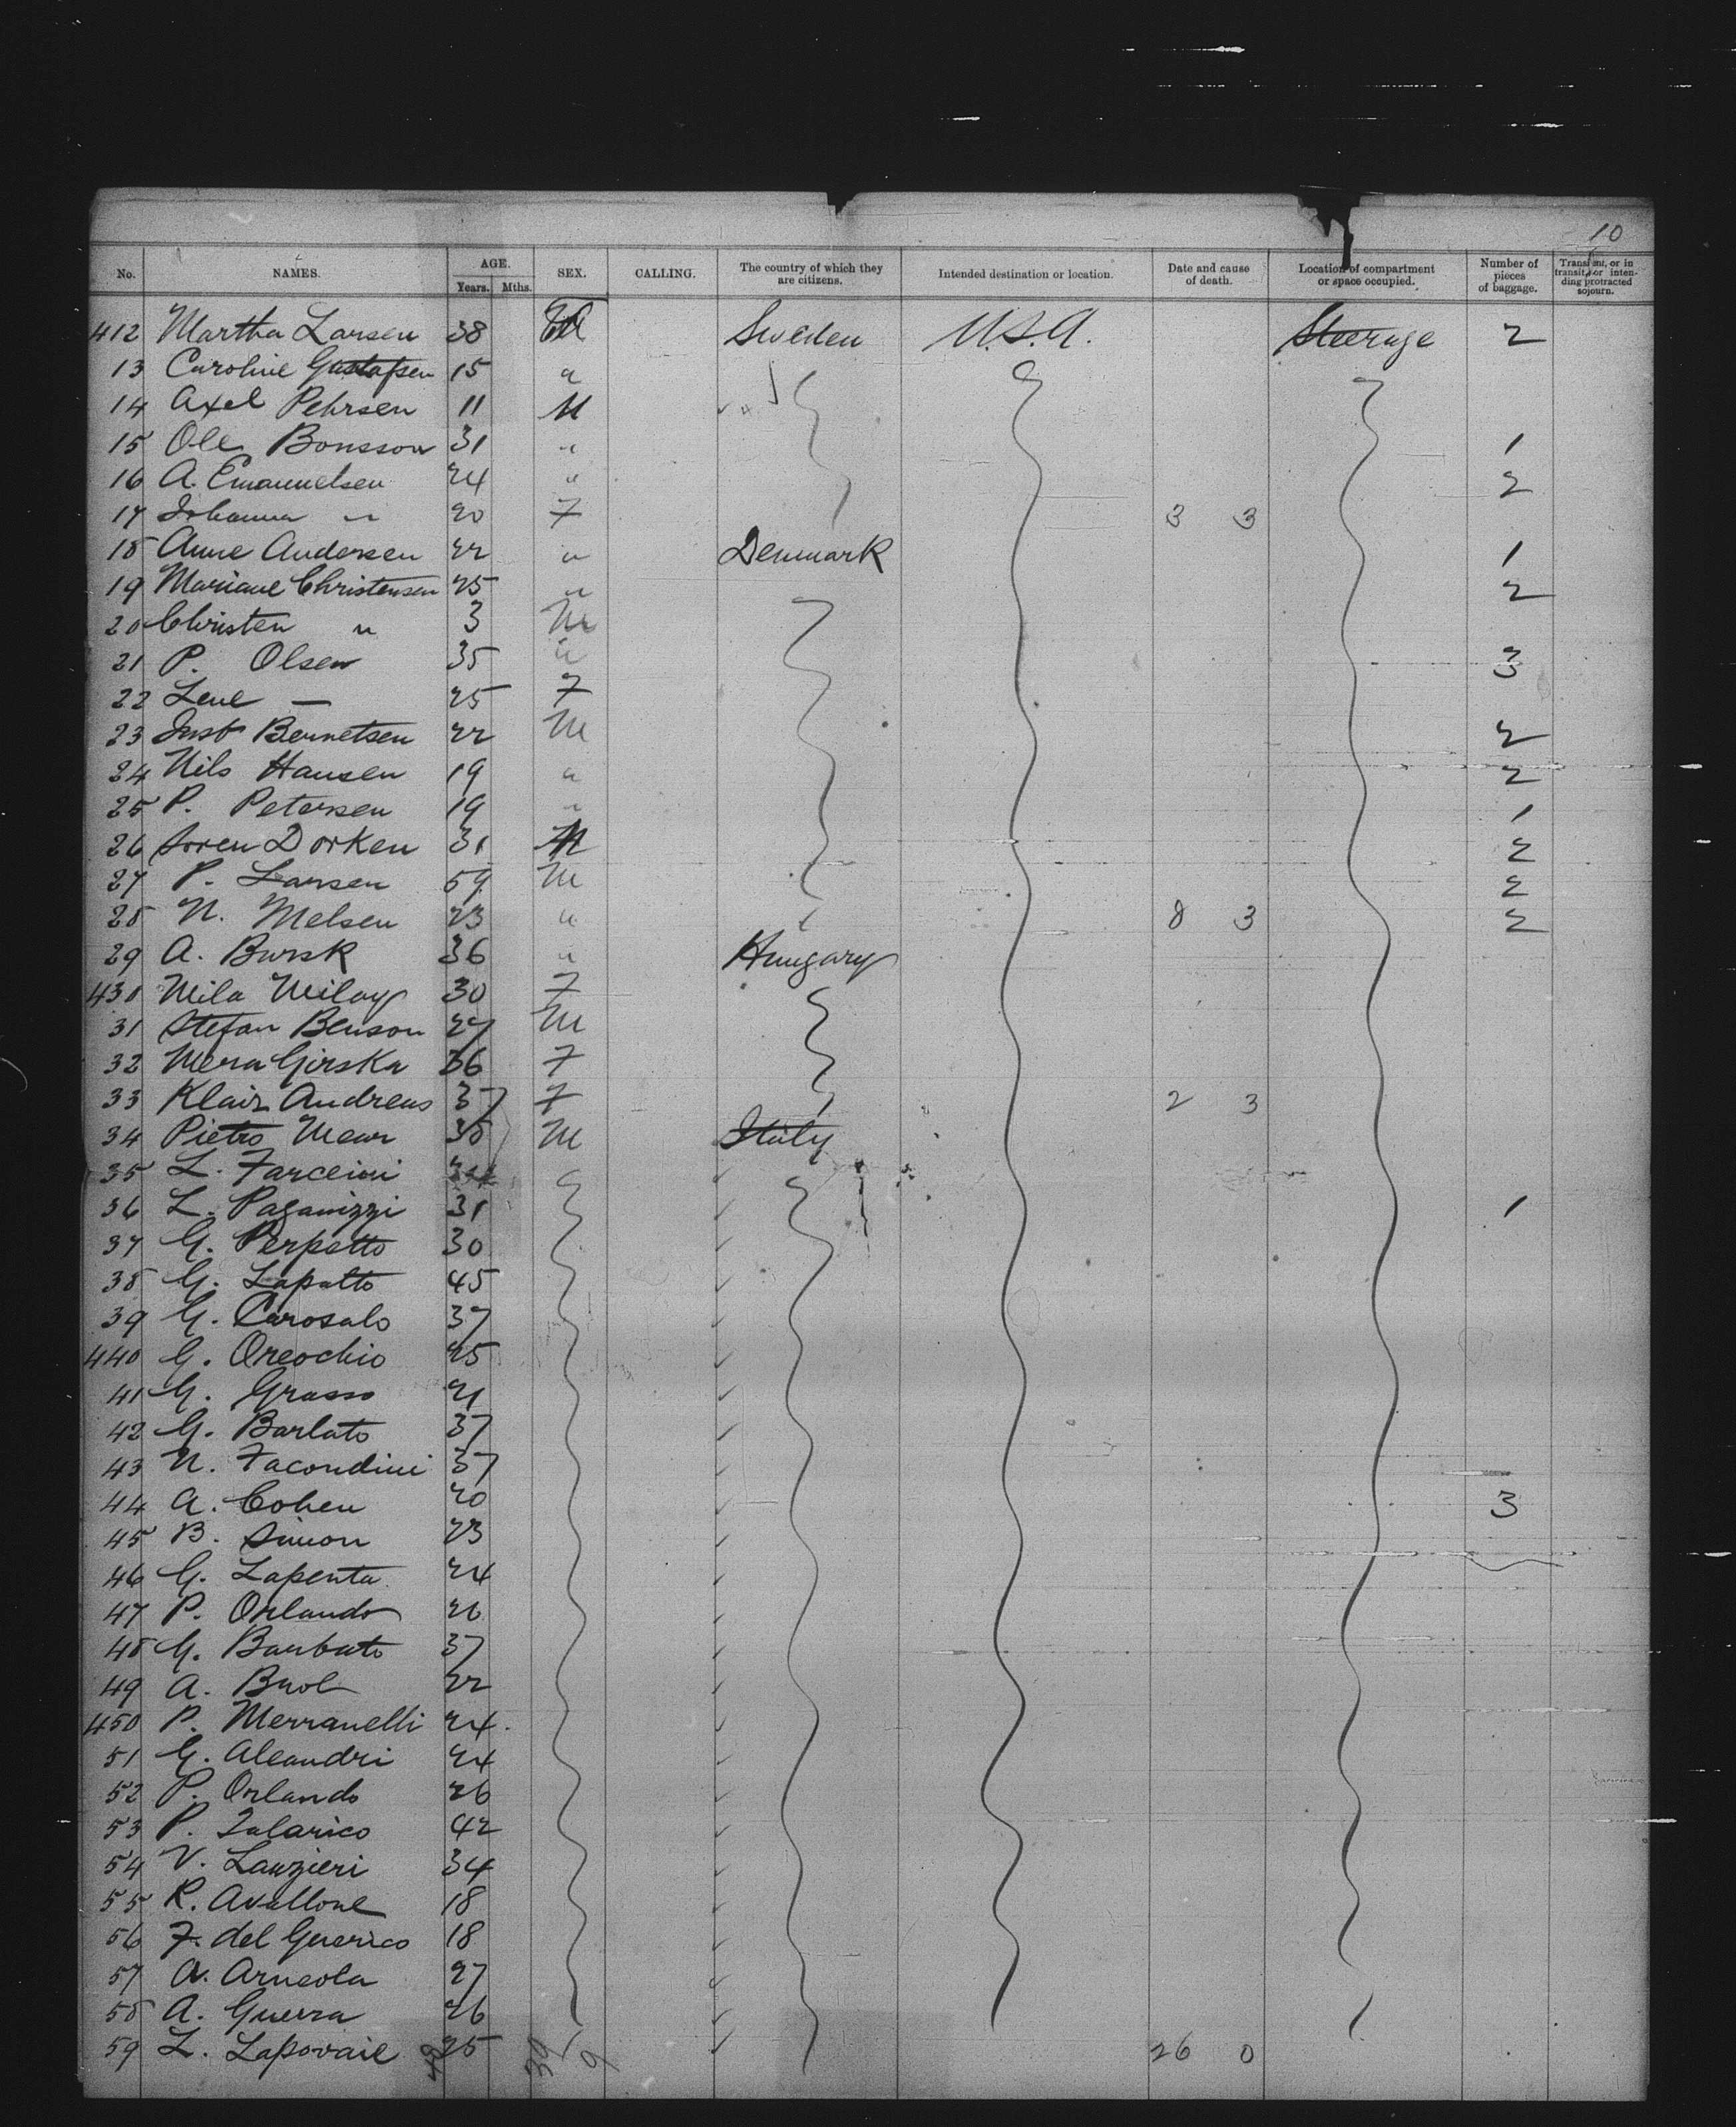 10
No. NAMES. AGE. Years. Mths. SEX. CALLING. The country of which they are citizens. Intended destination or location. Date and cause of death. Location of compartment or space occupied. Number of pieces of baggage. Transient, or in transit, or intending protracted sojourn.
412 Martha Larsen 38 Sweden U.S.A. Steerage 2
13 Caroline Gustafsen 15 "
14 Axel Pehrsen 11 M
15 Ole Bonsson 31 " 1
16 A. Emanuelsen 24 " 2
17 Johanna " 20 F 3 3
18 Anne Andersen 22 " Denmark 1
19 Mariane Christensen 25 " 2
20 Christen " 3 M
21 P. Olsen 35 " 3
22 Lene — 25 F
23 Just Bennetsen 22 M 2
24 Nils Hansen 19 " 2
25 P. Petersen 19 " 1
26 Soren Dorken 31 M 2
27 P. Larsen 59 M 2
28 N. Melsen 23 " 8 3 2
29 A. Bursk 36 " Hungary
430 Mila Milay 30 F
31 Stefan Benson 27 M
32 Mera Girska 36 F
33 Klair Andreas 37 F 2 3
34 Pietro Mear 38 M Italy
35 L. Farceini
36 L. Paganizzi 31 1
37 G. Perpetto 30
38 G. Lapatto 45
39 G. Carosalo 37
440 G. Oreochio 25
41 G. Grasso 21
42 G. Barlato 37
43 N. Facondini 37
44 A. Cohen 20 3
45 B. Simon 23
46 G. Lapenta 24
47 P. Orlando 26
48 G. Barbato 37
49 A. Buol 22
450 P. Merranelli 24
51 G. Aleandri 24
52 P. Orlando 26
53 P. Talarico 42
54 V. Lauzieri 34
55 R. Avallone 18
56 F. del Guerico 18
57 A. Arneola 27
58 A. Guerra 26
59 L. Lapovaie 25 26 0
39 9